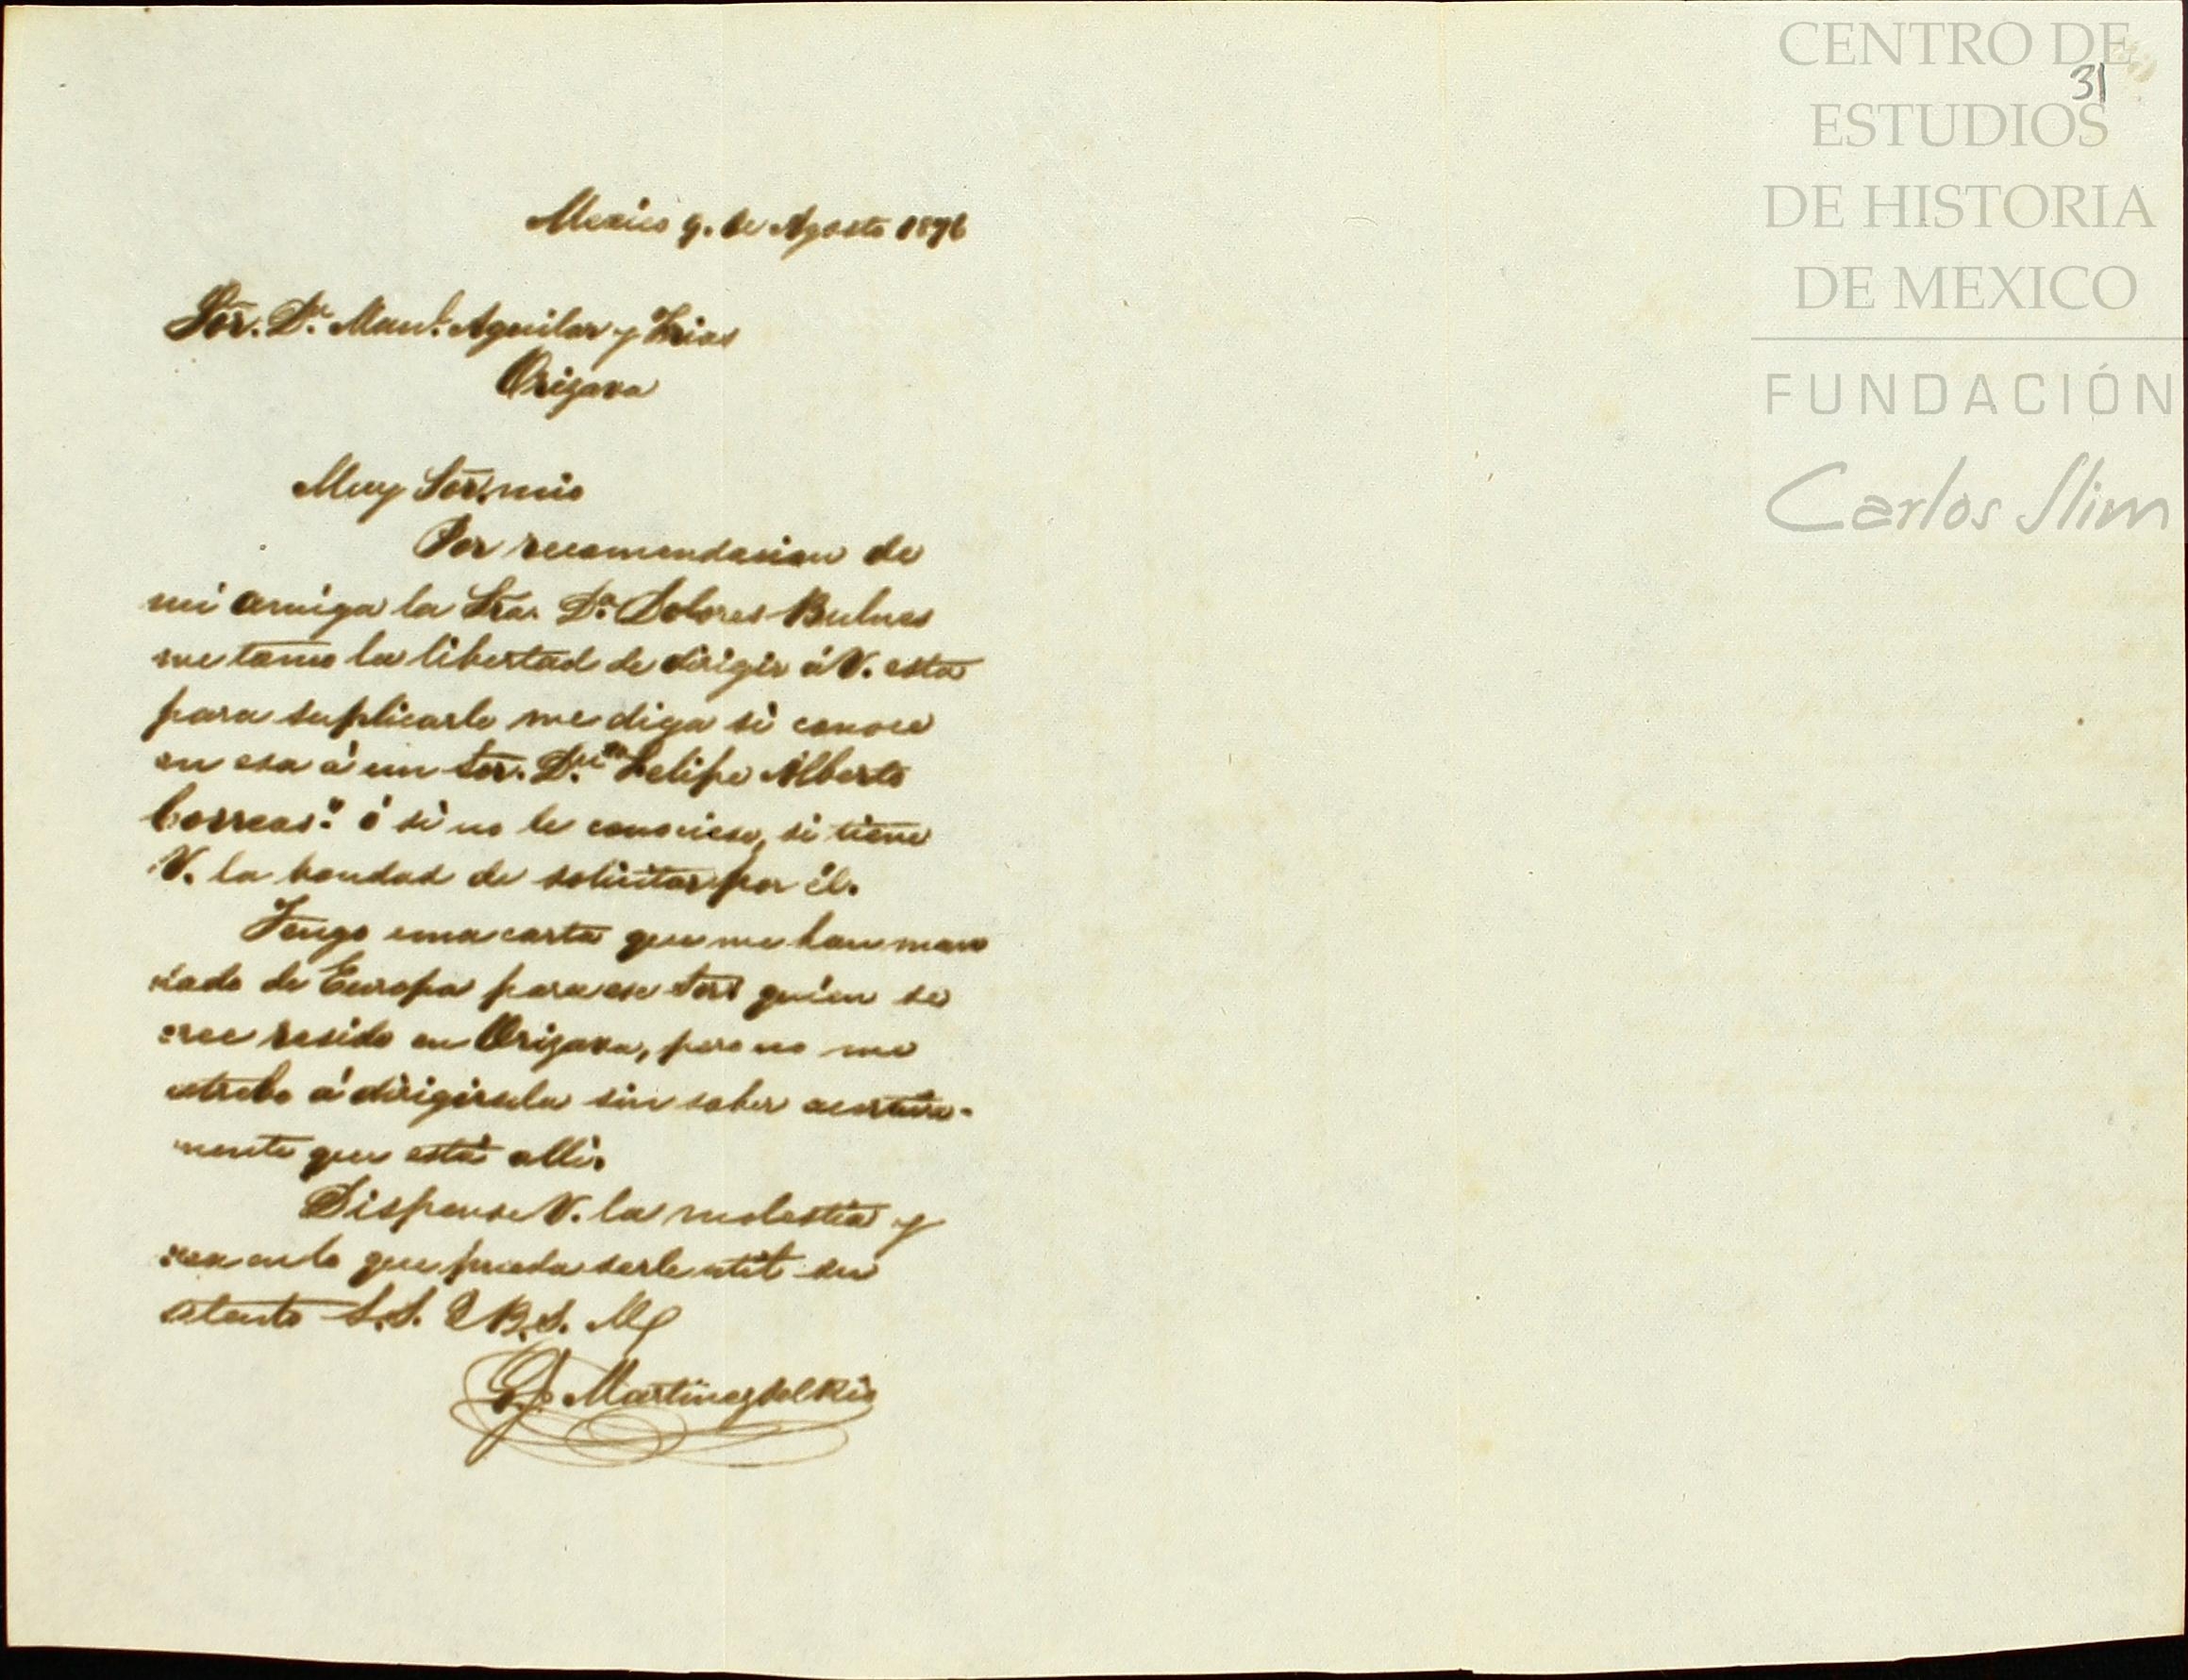 CENTRO DE
31
ESTUDIOS
DE HISTORIA
DE MEXICO
FUNDACIÓN
Carlos Slim
Mexico 9. de Agosto 1876
Sor. Dn. Manl. Aguilar y Frias
Orizava
Muy Sor. mio
Por recomendacion de
mi amiga la Sra. Da. Dolores Bulnes
me tomo la libertad de dirigir á V. esta
para suplicarle me diga si conoce
en esa á un Sor. Dn. "Felipe Alberto
Correas". ó si no le conociese, si tiene
V. la bondad de solicitar por él.
Tengo una carta que me han man
dado de Europa para ese Sor. quien se
cree reside en Orizava, pero no me
atrebo á dirigirsela sin saber acertiva-
mente que está alli.
Dispense V. la molestia y
vea en lo que pueda serle util su
atento S.S. Q B. S. M
P. Martinez del Rio